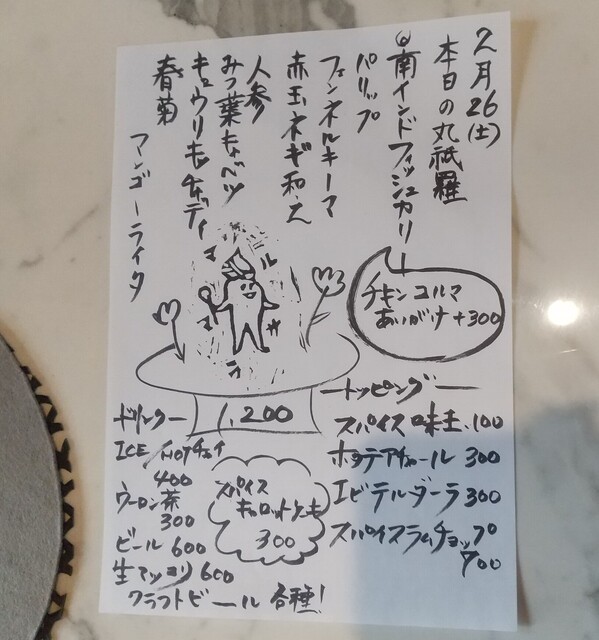 2月26(土)
本日の丸祇羅
◎南インドフィッシュカリー
パリップ
フェンネルキーマ
赤玉ネギ和え
人参
みつ葉キャベツ
キュウリキチャディ
春菊
マンゴーライタ
チキンコルマ
あいがけ+300
マ
ル
マ
サ
ラ
1,200
ートッピングー
スパイス味玉、100
ホタテアチャール 300
エビテルダーラ 300
スパイスラムチョップ
700
ドリンクー
ICE/HOTチャイ
400
ウーロン茶
300
ビール 600
生マッコリ 600
クラフトビール 各種!
スパイス
キャロットケーキ
300